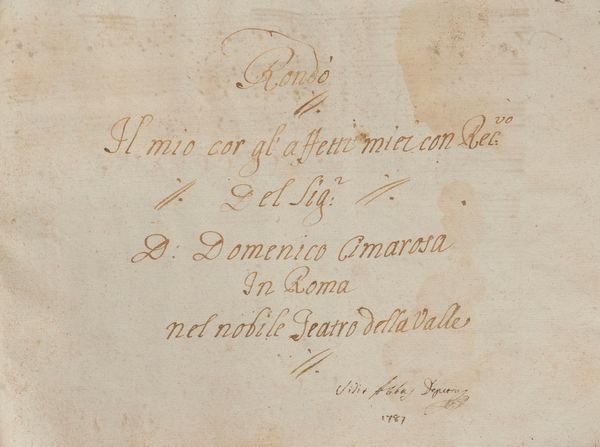 Rondò
Il mio cor gl'affetti miei con Rec.vo
Del Sig.r
D: Domenico Cimarosa
In Roma
nel nobile Teatro della Valle
1787